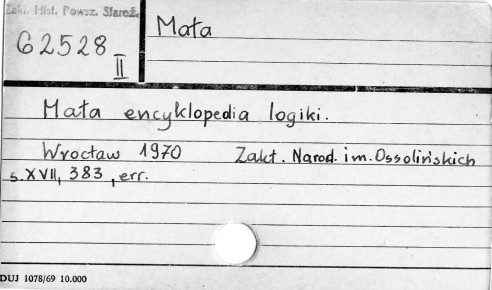 Zakł. Hist. Powsz. Staroż.
62528
II
Mała
Mała encyklopedia logiki.
Wrocław 1970 Zakł. Narod. im. Ossolińskich
s. XVII, 383, err.
DUJ 1078/69 10.000